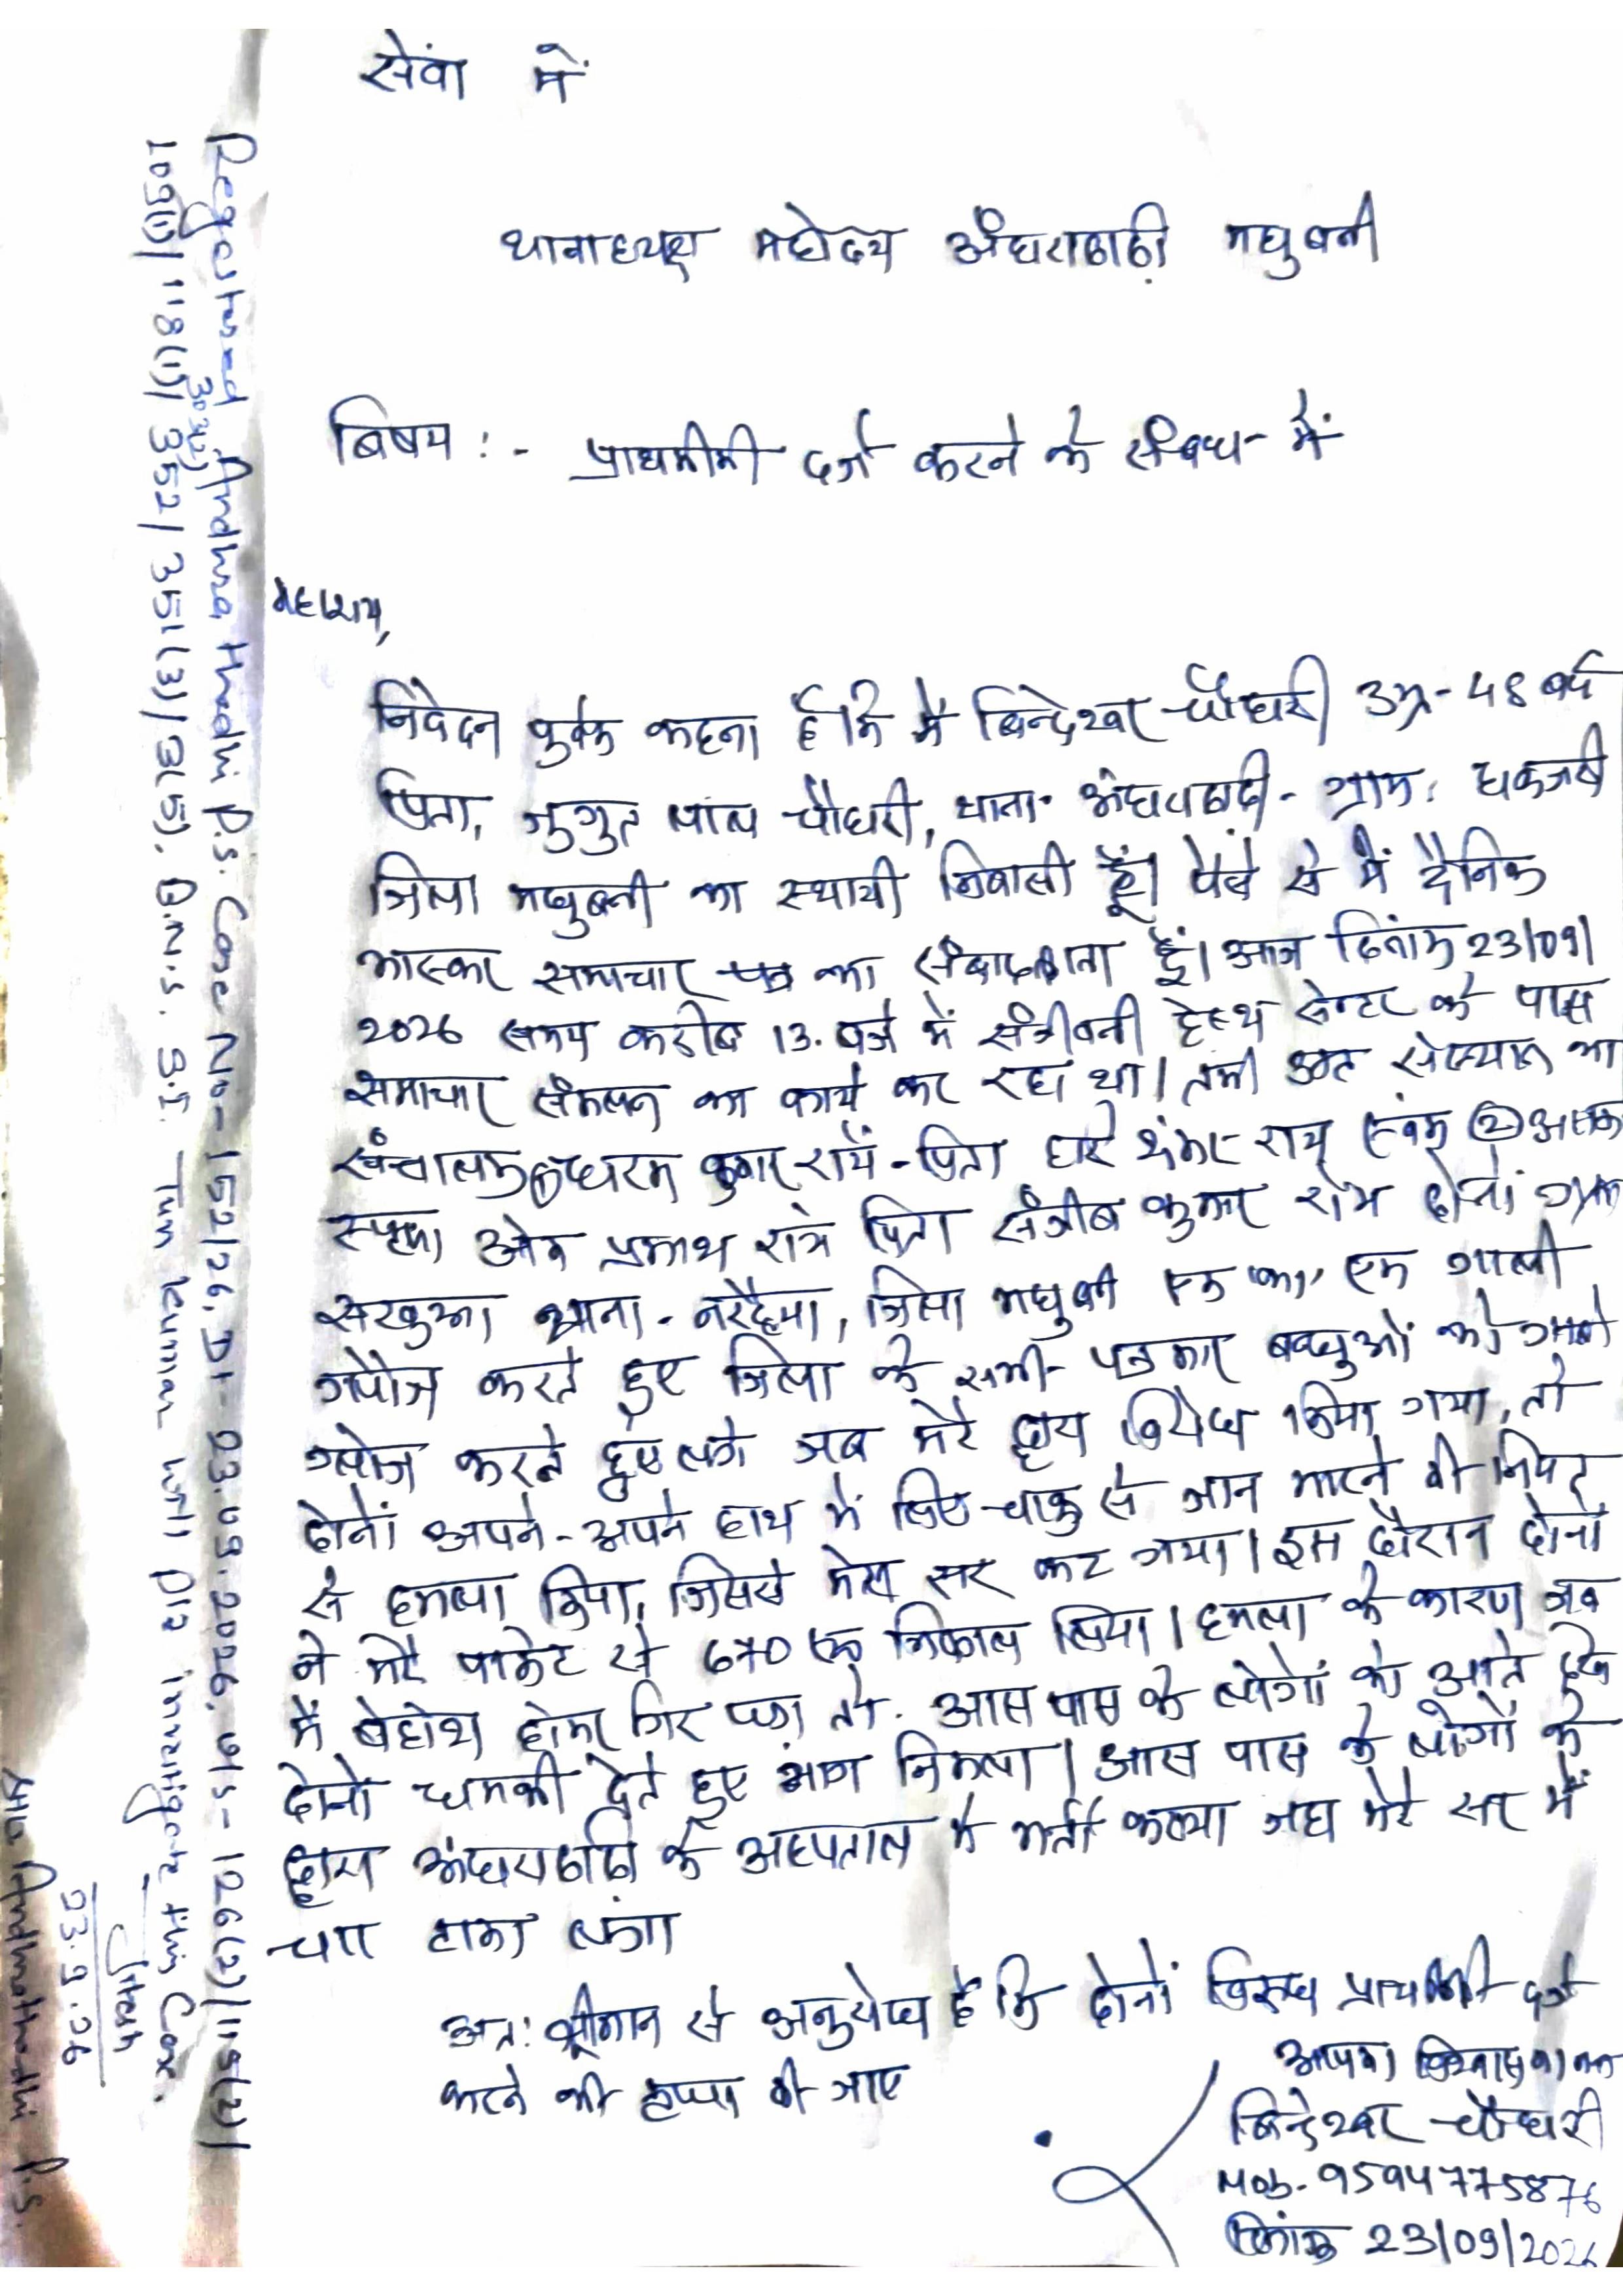 सेवा में
थानाध्यक्ष महोदय अंधराठाढ़ी मधुबनी
बिषय :- प्राथमीकी दर्ज करने के संबध में
महाशय,
निवेदन पुर्वक कहना है कि मै बिन्देश्वर चौधरी उम्र- 48 बर्ष
पिता, जुगुत लाल चौधरी, थाना- अंधराठाढी - ग्राम:
जिला मधुबनी का स्थायी निबासी हूँ। पेशे से मैं दैनिक
भास्कर समाचार पत्र का संबाददाता हूं। आज दिनांक 23/09/
2026 समय करीब 13. बजे में संजीवनी हेल्थ सेन्टर के पास
समाचार संकलन का कार्य कर रहा था। तभी उक्त संस्थान का
संचालक ① धरम कुमार राय - पिता शंकर राय एंवम ②
ओम प्रकाश राय पिता संजीब कुमार राय दोनों ग्राम
सखुआ थाना - नरहैया, जिला मधुबनी गाली
गलौज करते हुए जिला के सभी पत्रकार बन्धुओं को गाली
गलौज करने हुए लगे जब मेरे द्वारा विरोध किया गया, तो
दोनों अपने-अपने हाथ में लिए चाकु से जान मारने की नियत
से हमला किया, जिससे मेरा सर कट गया। इस दौरान दोनों
ने मेरे पाकेट से 670 रू निकाल लिया। हमला के कारण जब
मैं बेहोश होकर गिर पड़ा तो. आस पास के लोगों को आते देख
दोनो धमकी देते हुए भाग निकला। आस पास के लोगों के
द्वारा अंधराठाढी के अस्पताल मे भर्ती कराया जहा मेरे सर में
चार टाका लगा
अत: श्रीमान से अनुरोध है कि दोनों बिरुध प्राथमिकी दर्ज
करने की कृपा की जाए
आपका बिश्वासी
बिन्देश्वर चौधरी
Mob- 9594775876
दिनांक 23/09/2026
Registered Andhra Thadhi P.S. Case No- 152/26, Dt- 23.09.2026, U/s- 126(2)/115(2)/
109(1)/118(1)/ 303(2) 352/351(3)/3(5). B.N.S. S.I. Tun kumar will plz investigate this Case.
Jitesh
23.9.26
SHO Andhrathadhi P.S.